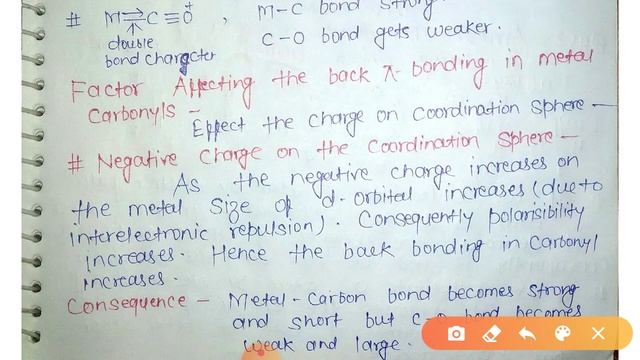 # M⇌C≡O⁺ , M-C bond strong
double C-O bond gets weaker.
bond character
Factor Affecting the back π-bonding in metal
Carbonyls -
Effect the charge on Coordination Sphere —
# Negative Charge on the Coordination Sphere —
As the negative charge increases on
the metal Size of d-orbital increases (due to
interelectronic repulsion). Consequently polarisibility
increases. Hence the back bonding in Carbonyl
increases.
Consequence - Metal-Carbon bond becomes strong
and short but C-O bond becomes
weak and large.